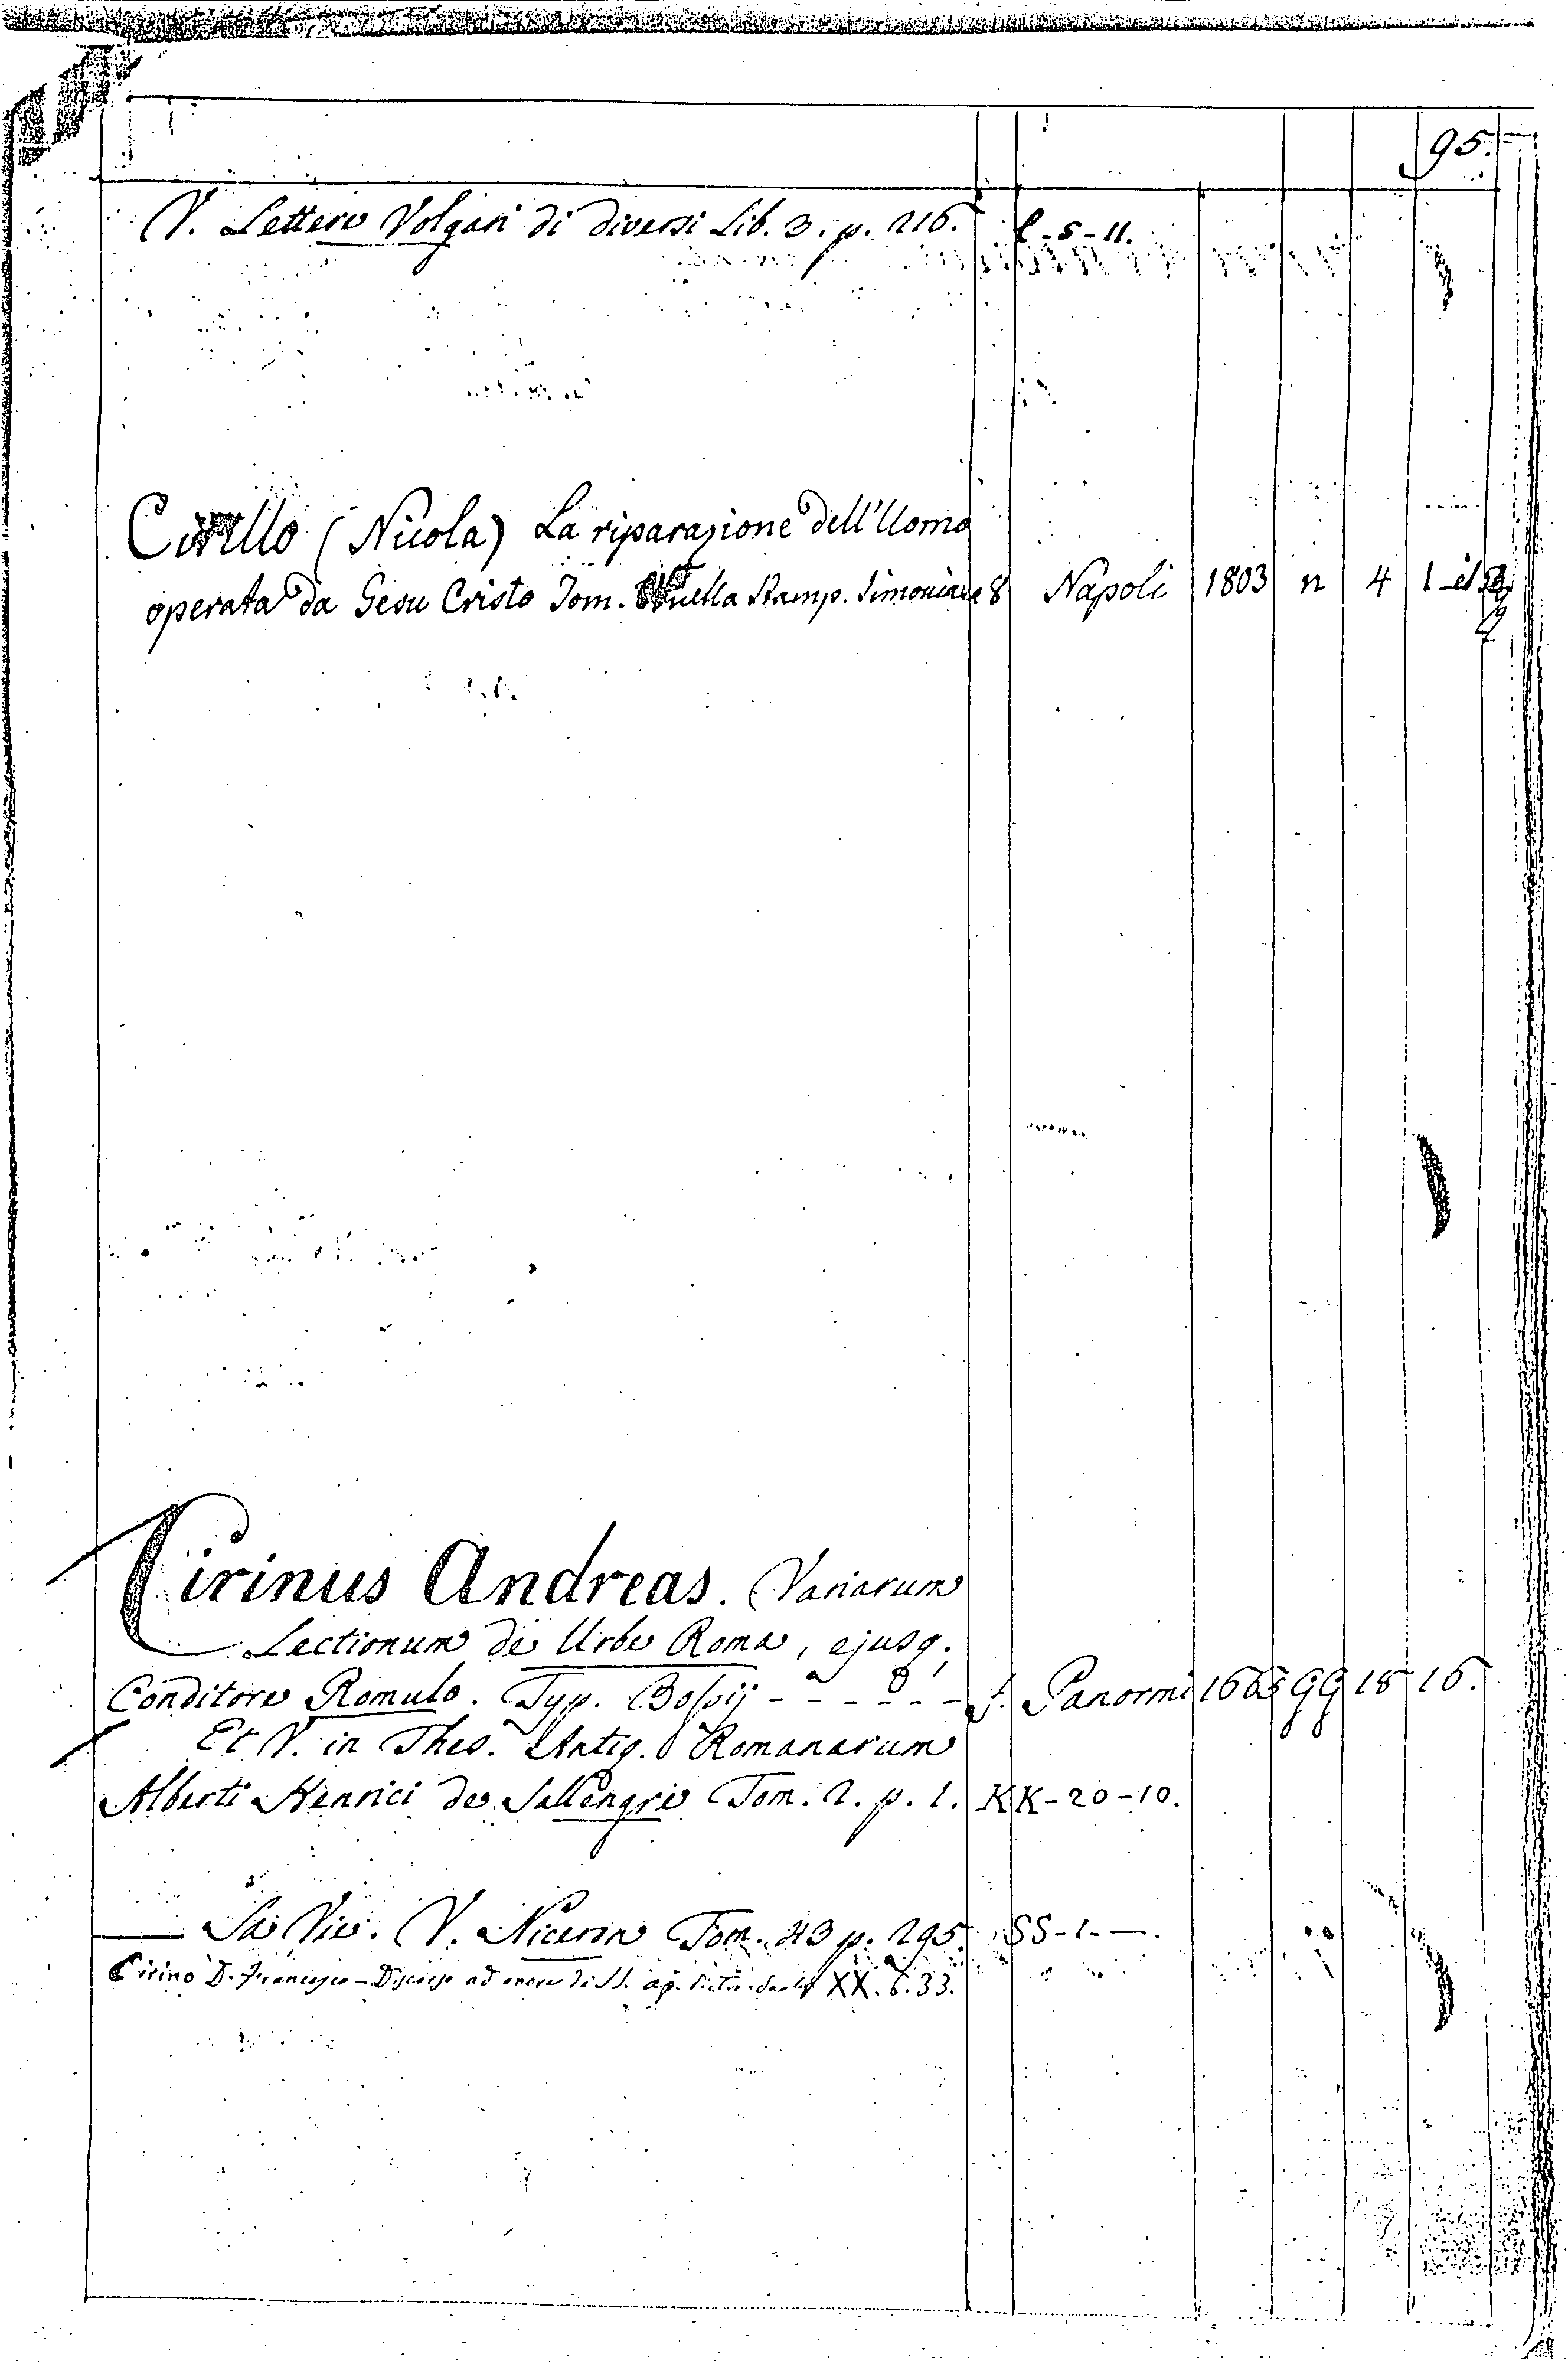 95.
V. Lettere Volgari di diversi Lib. 3. p. 216. l-5-11.
Cirillo (Nicola) La riparazione dell'Uomo
operata da Gesu Cristo Tom. nella Stamp. Simoniana 8 Napoli 1803 n 4 1
Cirinus Andreas. Variarum
Lectionum de Urbe Roma, ejusq;
Conditore Romulo. Typ. Bossij - - - - - - f. Panormi 1665 GG 18 16.
Et V. in Thes. Antiq. Romanarum
Alberti Henrici de Sallengre Tom. 2. p. 1. KK-20-10.
— Sa Vie. V. Niceron Tom. 43 p. 295. SS-1.-.
Cirino D. Francesco - Discorso ad onore di S. XX. 6. 33.